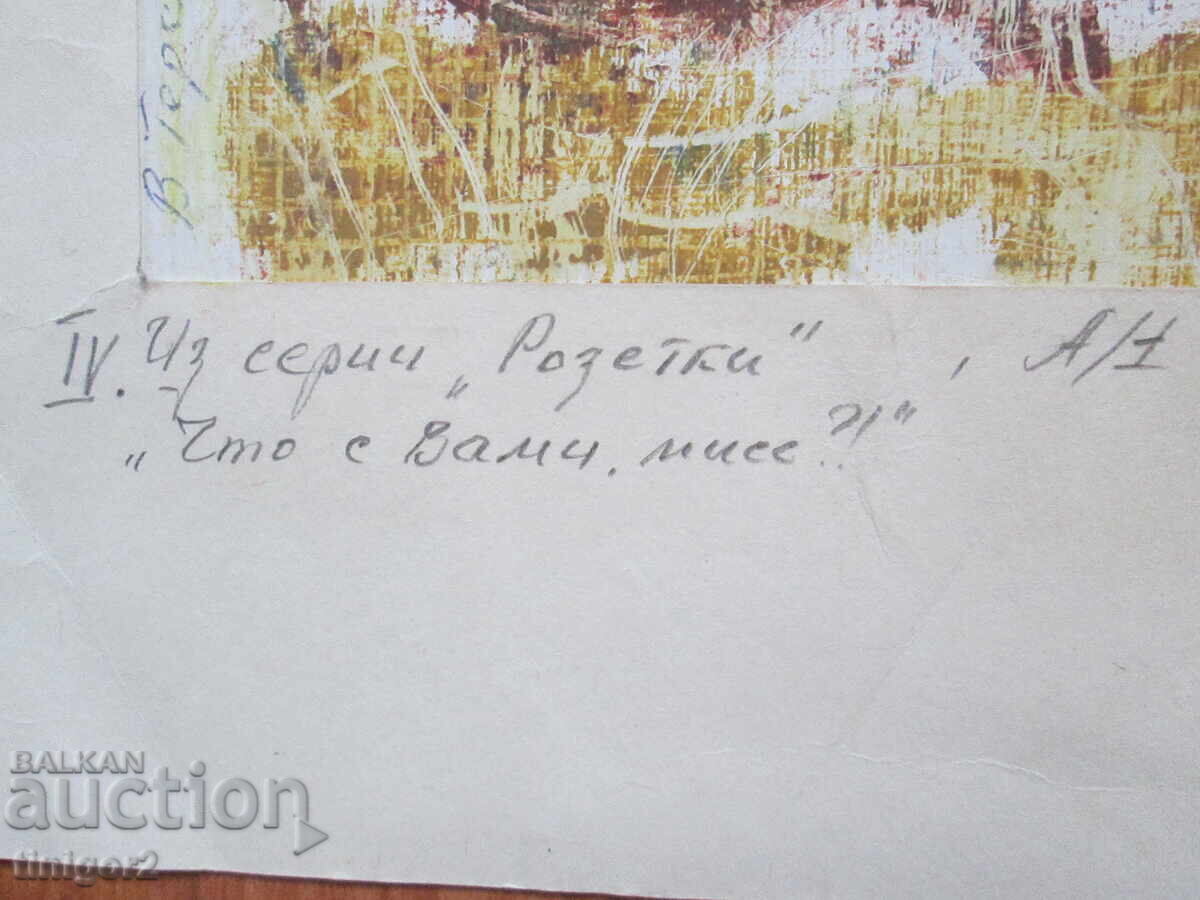 В Тера
IV. Из серии „Розетки“, А/1
„Что с Вами, мисс?!“
BALKAN
auction
tinigor2